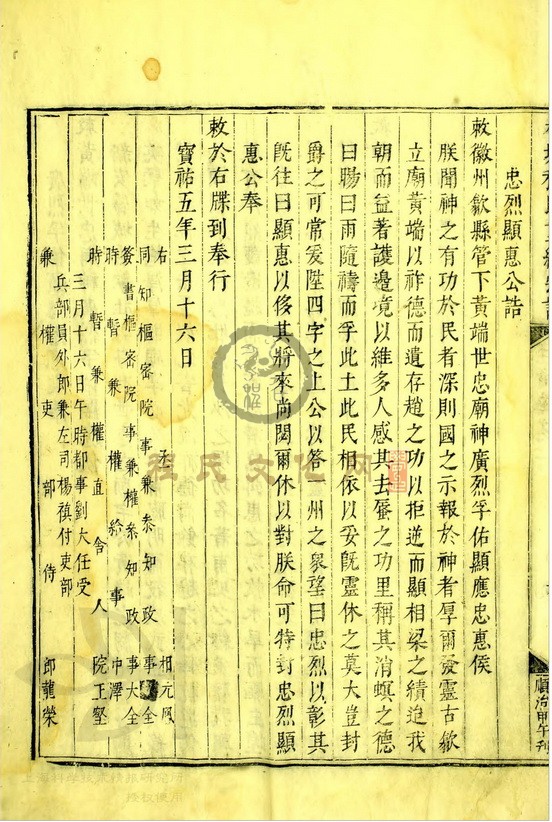 忠烈顯惠公誥
敕徽州歙縣管下黃端世忠廟神廣烈孚佑顯應忠惠侯
朕聞神之有功於民者深則國之示報於神者厚爾發靈古歙
立廟黃端以祚德而遺存趙之功以拒逆而顯相梁之績迨我
朝而益著護邊境以維多人感其去蜃之功里稱其消螟之德
曰暘曰雨隨禱而孚此土此民相依以妥旣靈休之莫大豈封
爵之可常爰陞四字之上公以答一州之衆望曰忠烈以彰其
旣往曰顯惠以侈其將來尚閎爾休以對朕命可特封忠烈顯
惠公奉
敕於右牒到奉行
寶祐五年三月十六日
右丞相元鳳
同知樞密院事兼叅知政事全
簽書樞密院事兼權叅知政事大全
時暫兼權給事中澤
時暫兼權直舍人院王壑
三月十六日午時都事劉大任受
兵部員外郎兼左司楊禛付吏部
兼權吏部侍郎龍榮
順治甲午刊
程氏文化网
上海科学技术情报研究所
授权使用